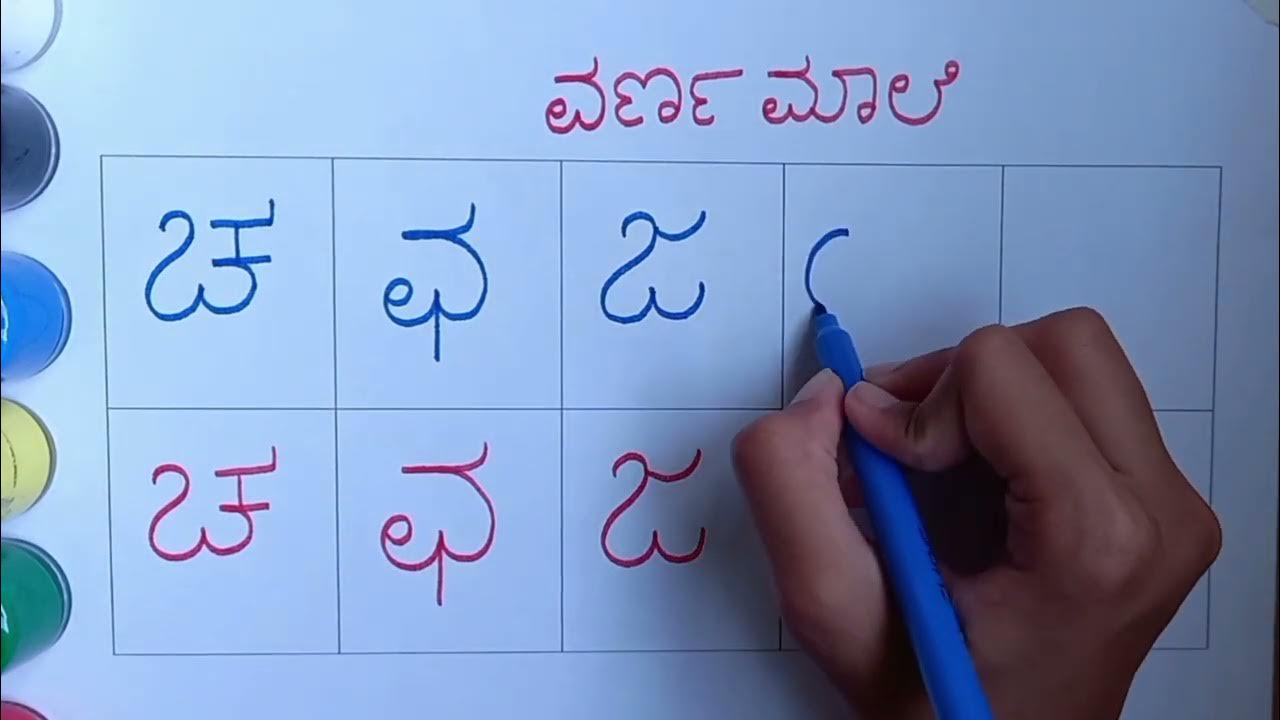 ವರ್ಣಮಾಲೆ
ಚ ಛ ಜ
ಚ ಛ ಜ